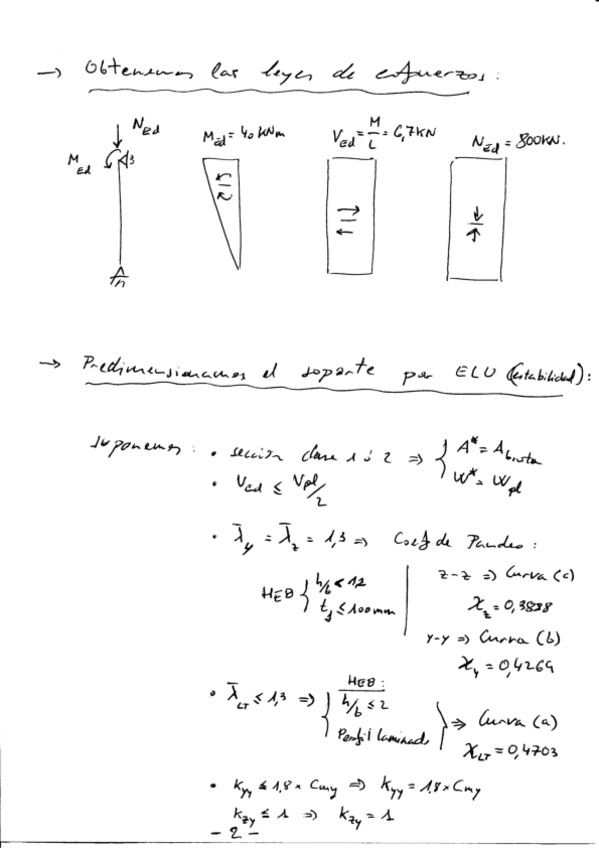 → Obtenemos las leyes de esfuerzos:
N_Ed
M_Ed
M_Ed = 40 kNm
V_Ed = M/L = 6,7 KN
N_Ed = 800 KN.
→ Predimensionamos el soporte por ELU (Estabilidad):
Suponemos: • sección clase 1 ó 2 ⇒ { A* = A_bruta
W* = W_pl
• V_Ed ≤ V_pl/2
• λ̄_y = λ̄_z = 1,3 ⇒ Coef de Pandeo:
HEB { h/b < 1,2
t_f ≤ 100 mm
z-z ⇒ Curva (c)
χ_z = 0,3888
y-y ⇒ Curva (b)
χ_y = 0,4269
• λ̄_LT ≤ 1,3 ⇒ { HEB:
h/b ≤ 2
Perfil laminado } ⇒ Curva (a)
χ_LT = 0,4703
• K_yy ≤ 1,8 × C_my ⇒ K_yy = 1,8 × C_my
K_zy ≤ 1 ⇒ K_zy = 1
- 2 -